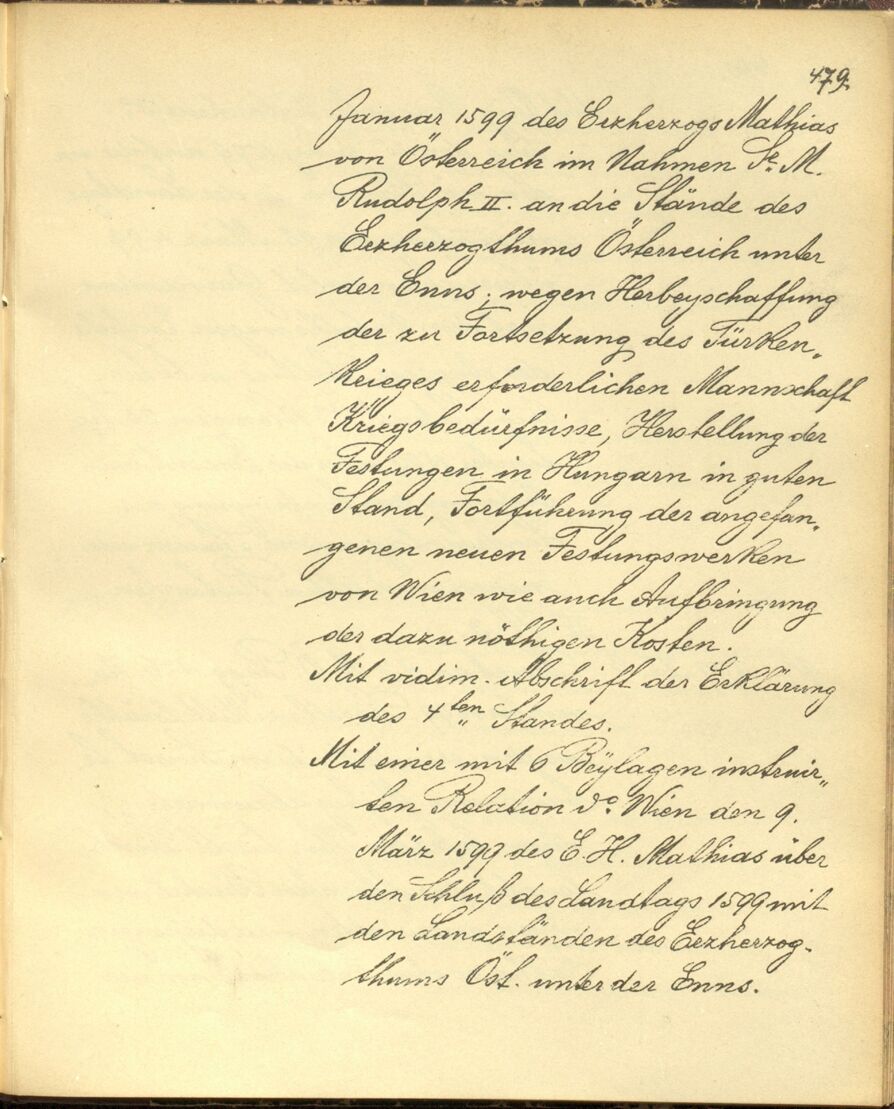 479.
Januar 1599 des Erzherzogs Mathias
von Österreich im Nahmen Sr. M.
Rudolph II. an die Stände des
Erzherzogthums Österreich unter
der Enns; wegen Herbeyschaffung
der zu Fortsetzung des Türken„
Krieges erforderlichen Mannschaft
Kriegsbedürfnisse, Herstellung der
Festungen in Hungarn in guten
Stand, Fortführung der angefan„
genen neuen Festungswerken
von Wien wie auch Aufbringung
der dazu nöthigen Kosten.
Mit vidim. Abschrift der Erklärung
des 4ten Standes.
Mit einer mit 6 Beÿlagen instruir„
ten Relation do. Wien den 9.
März 1599 des E. H. Mathias über
den Schluß des Landtags 1599 mit
den Landständen des Erzherzog-
thums Öst. unter der Enns.